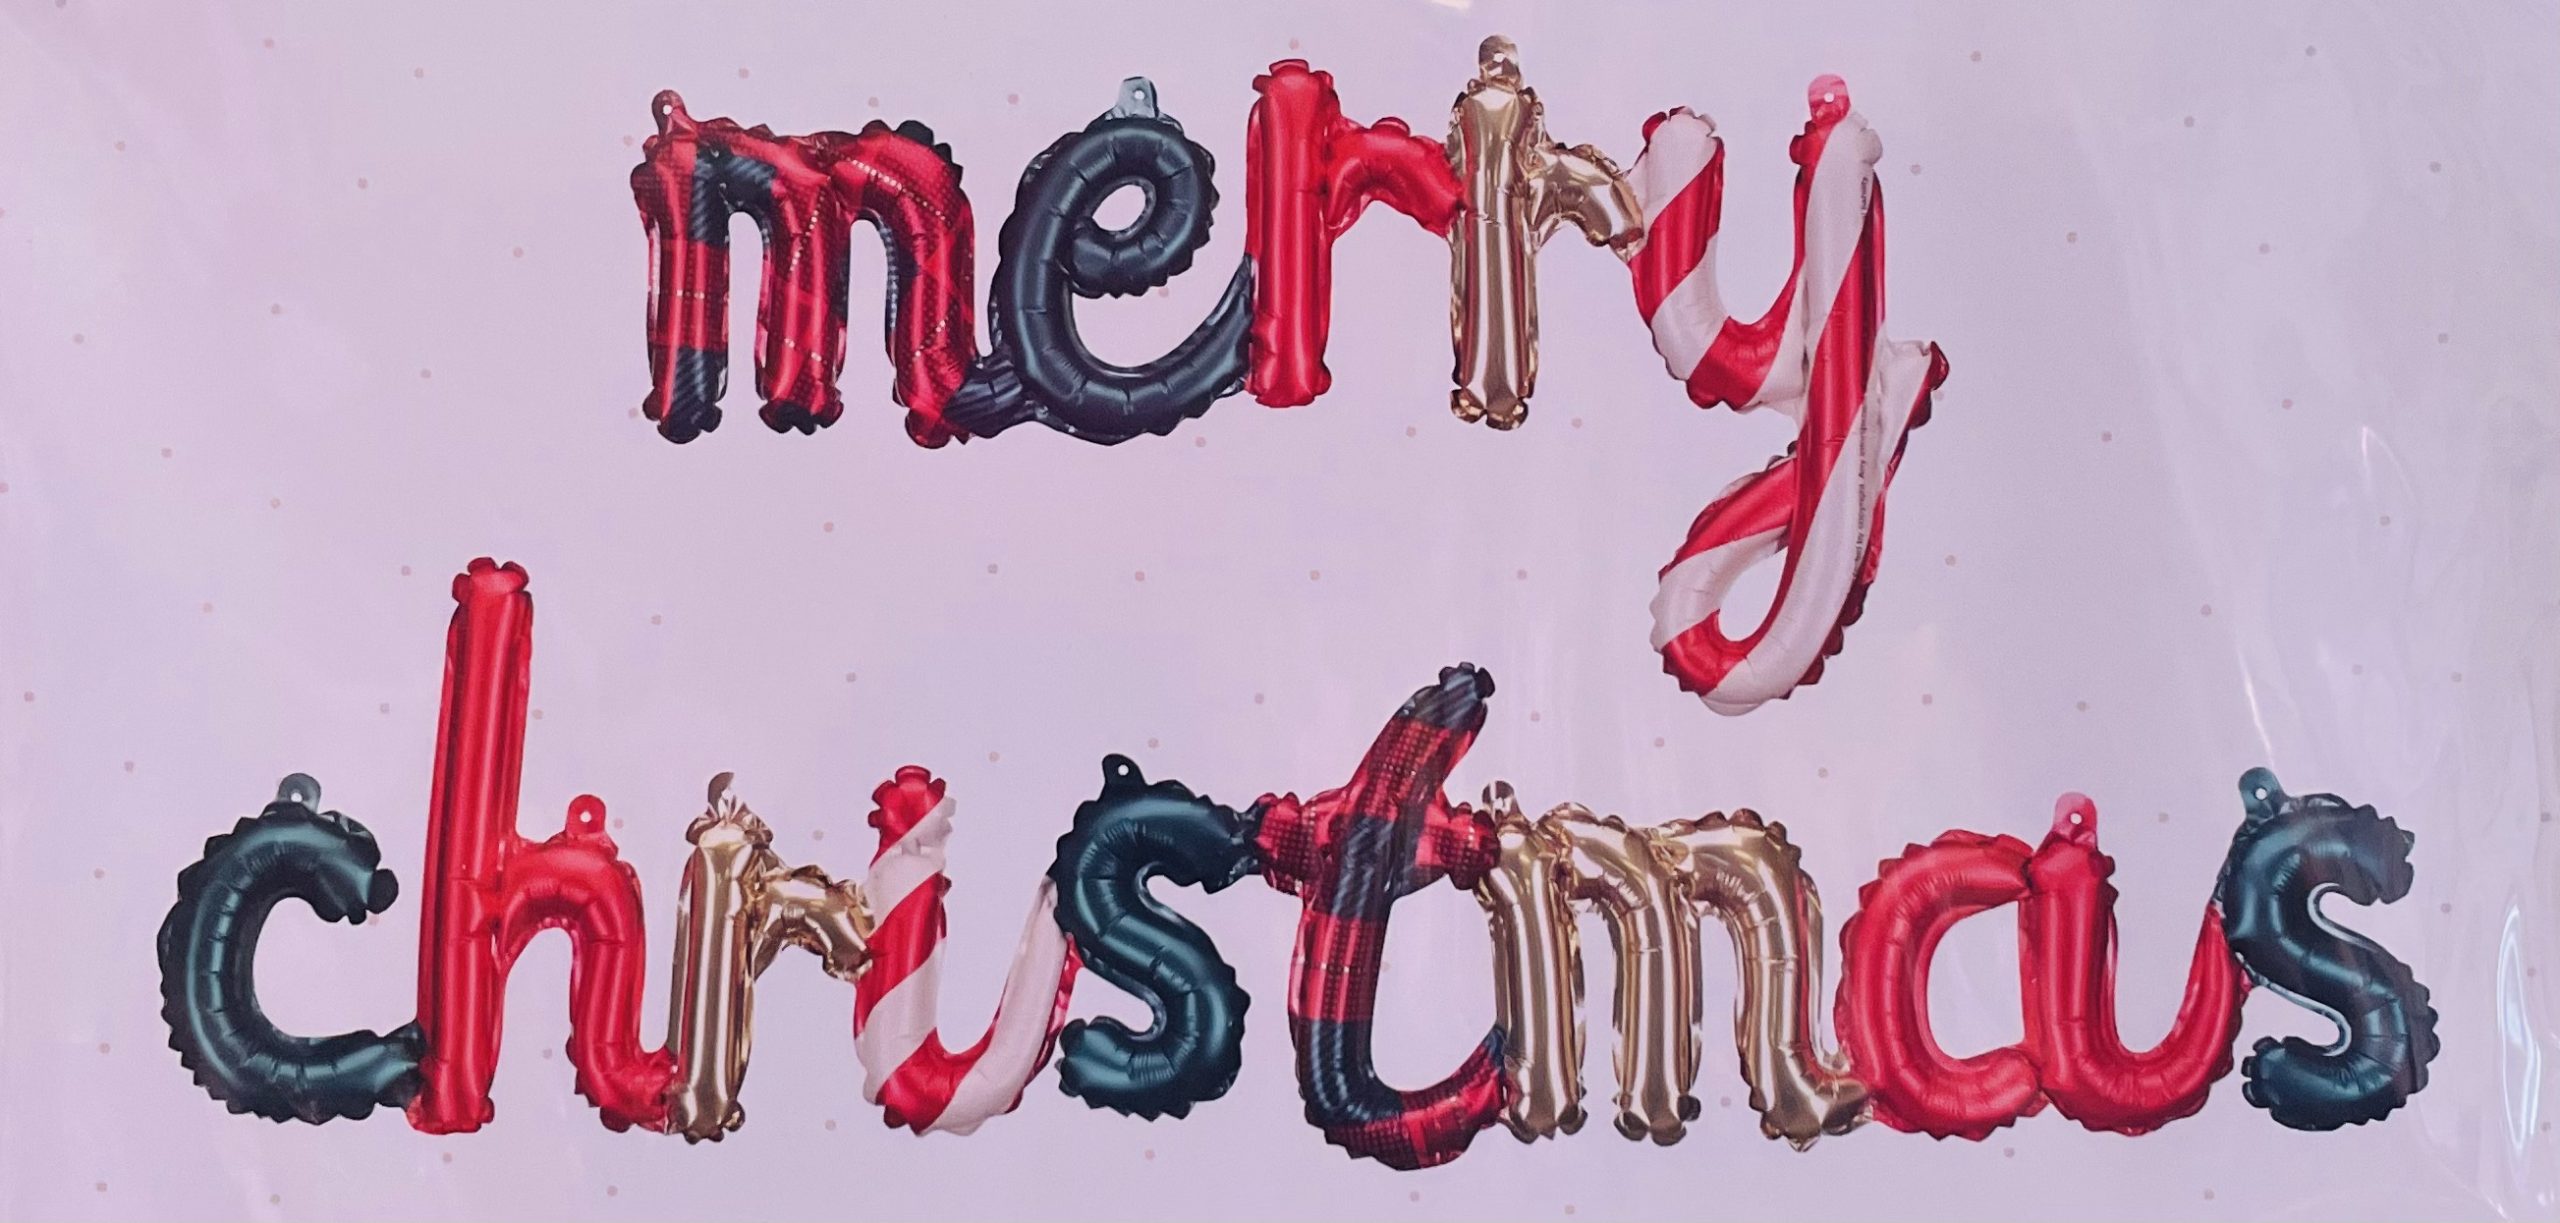 merry
christmas